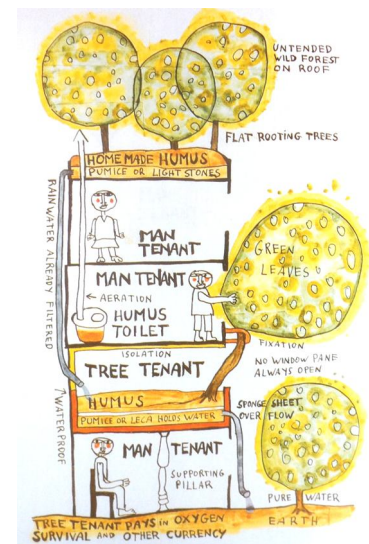 UNTENDED
WILD FOREST
ON ROOF
FLAT ROOTING TREES
HOME MADE HUMUS
PUMICE OR LIGHT STONES
RAINWATER ALREADY FILTERED
MAN
TENANT
MAN TENANT
← AERATION
HUMUS
TOILET
GREEN
LEAVES
FIXATION
NO WINDOW PANE
ALWAYS OPEN
ISOLATION
TREE TENANT
HUMUS
PUMICE OR LECA HOLDS WATER
SPONGE SHEET
OVER FLOW
↑WATERPROOF
MAN TENANT
SUPPORTING
PILLAR
PURE WATER
EARTH
TREE TENANT PAYS IN OXYGEN
SURVIVAL AND OTHER CURRENCY